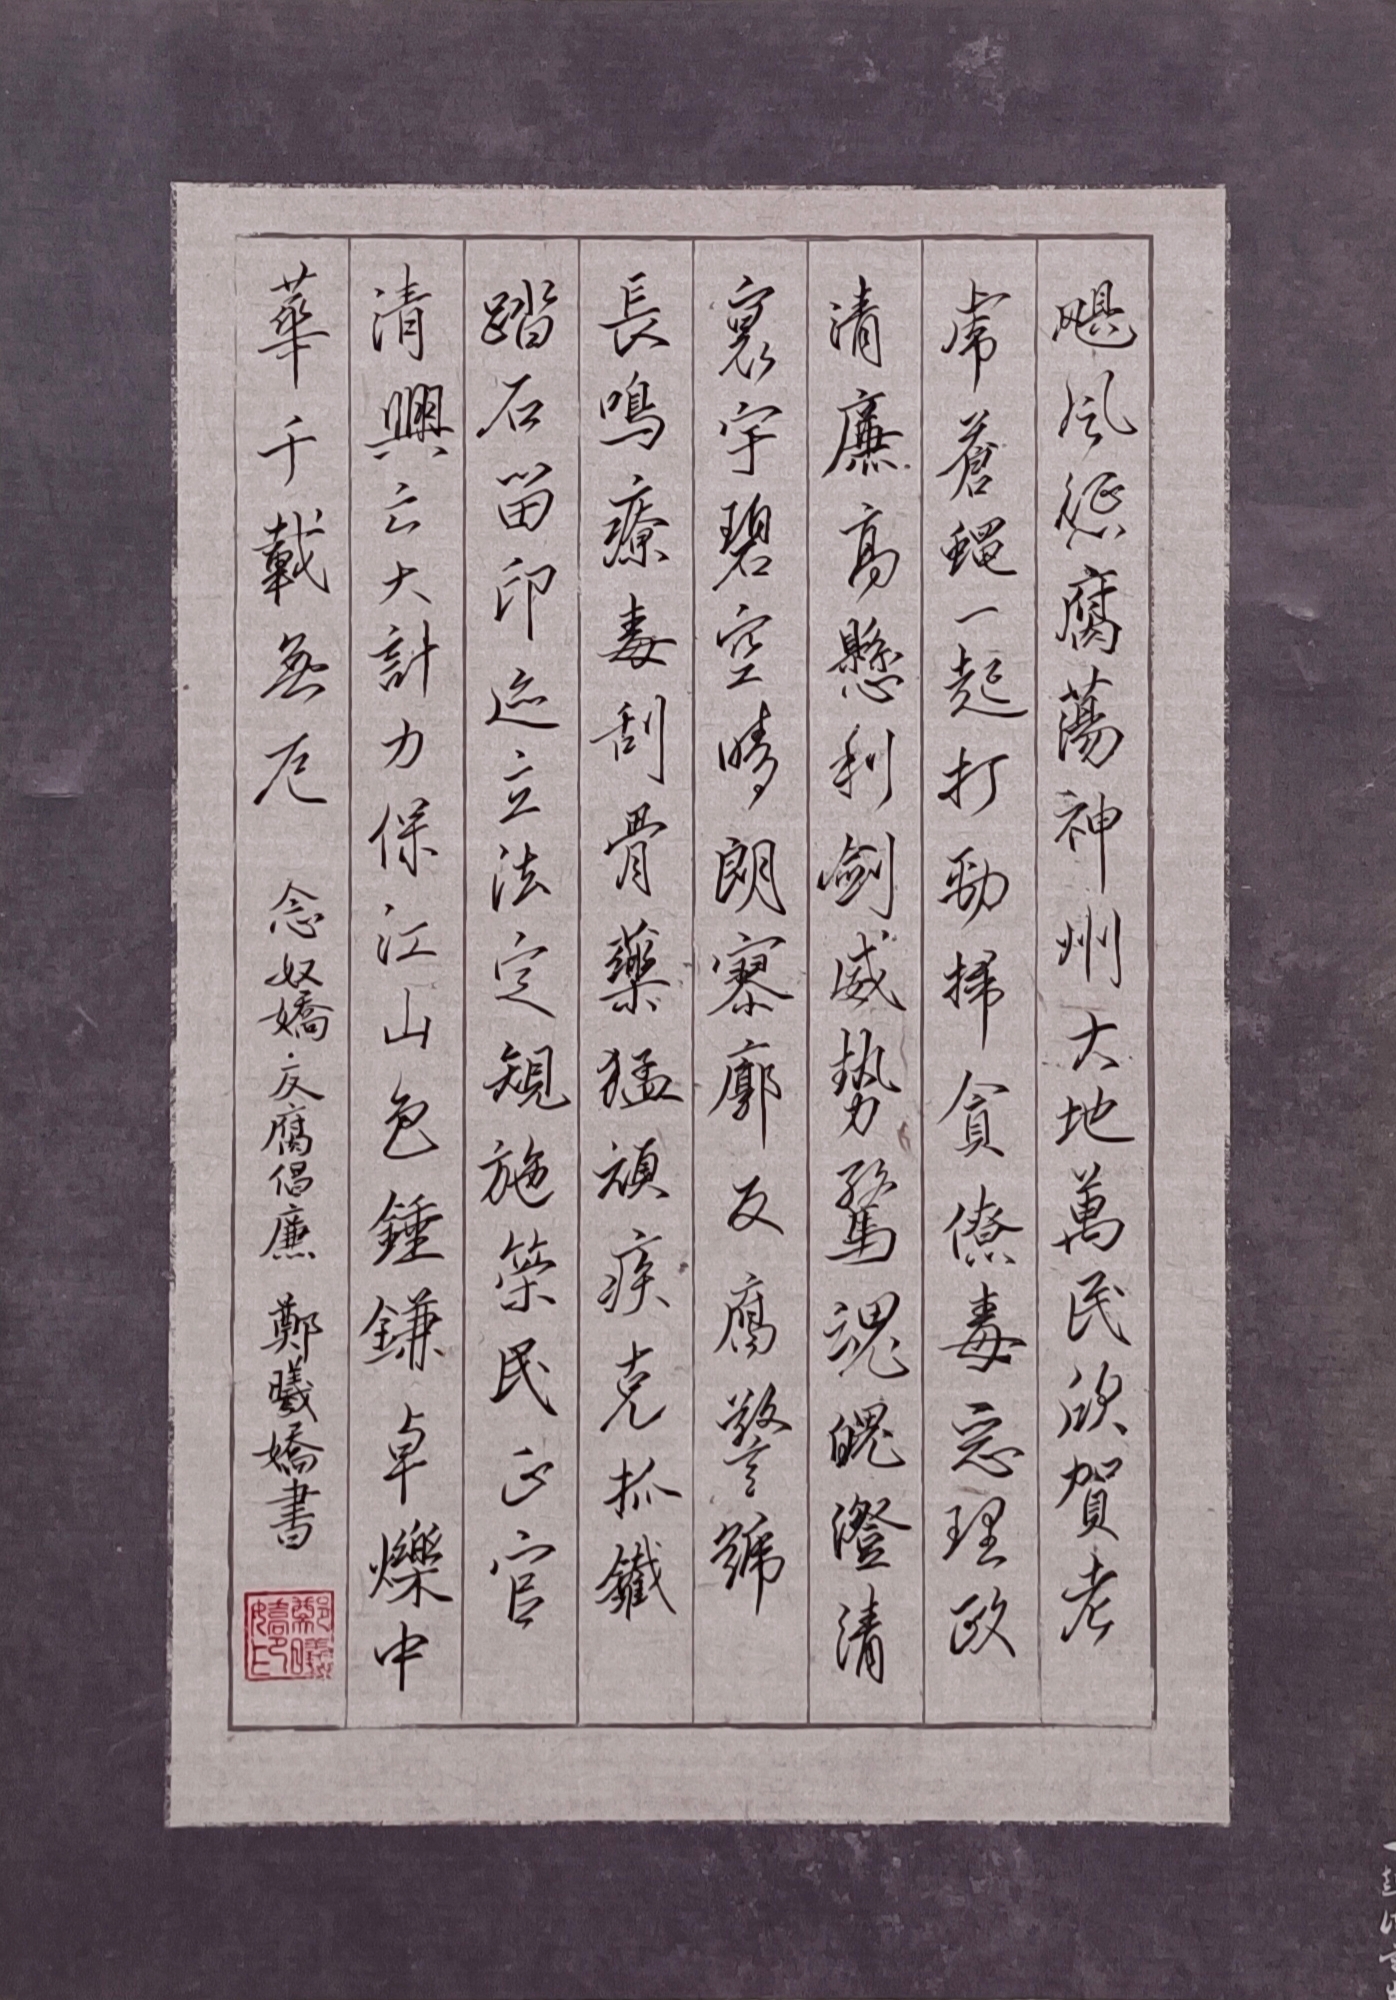 颶風懲腐蕩神州大地萬民欣賀老
虎蒼蠅一起打勁掃貪僚毒惡理政
清廉高懸利劍威勢驚魂魄澄清
寰宇碧空晴朗寥廓反腐警號
長鳴療毒刮骨藥猛頑疾克抓鐵
踏石留印迹立法定規施策民正官
清興云大計力保江山色錘鎌卓爍中
華千載無厄 念奴嬌反腐倡廉 鄭曦嬌書
鄭曦嬌印